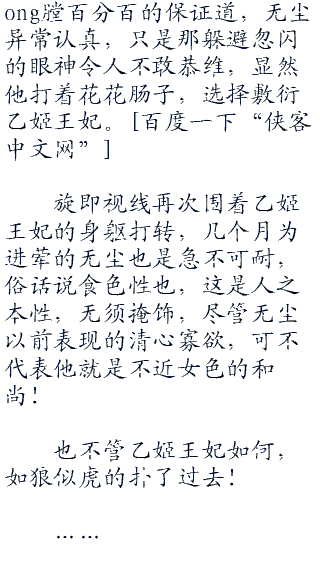 ong膛百分百的保证道，无尘
异常认真，只是那躲避忽闪
的眼神令人不敢恭维，显然
他打着花花肠子，选择敷衍
乙姬王妃。[百度一下“侠客
中文网”]
旋即视线再次围着乙姬
王妃的身躯打转，几个月为
进荤的无尘也是急不可耐，
俗话说食色性也，这是人之
本性，无须掩饰，尽管无尘
以前表现的清心寡欲，可不
代表他就是不近女色的和
尚！
也不管乙姬王妃如何，
如狼似虎的扑了过去！
……